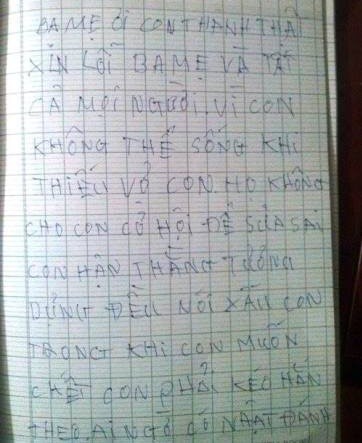 BA MẸ ƠI CON THÀNH THẬT
XIN LỖI BA MẸ VÀ TẤT
CẢ MỌI NGƯỜI. VÌ CON
KHÔNG THỂ SỐNG KHI
THIẾU VỢ CON. HỌ KHÔNG
CHO CON CƠ HỘI ĐỂ SỬA SAI
CON HẬN THẰNG TƯỜNG
DỰNG ĐỀU NÓI XẤU CON
TRONG KHI CON MUỐN
CHẾT CON PHẢI KÉO HẮN
THEO. AI NGỜ CÓ NHÁT ĐÁNH